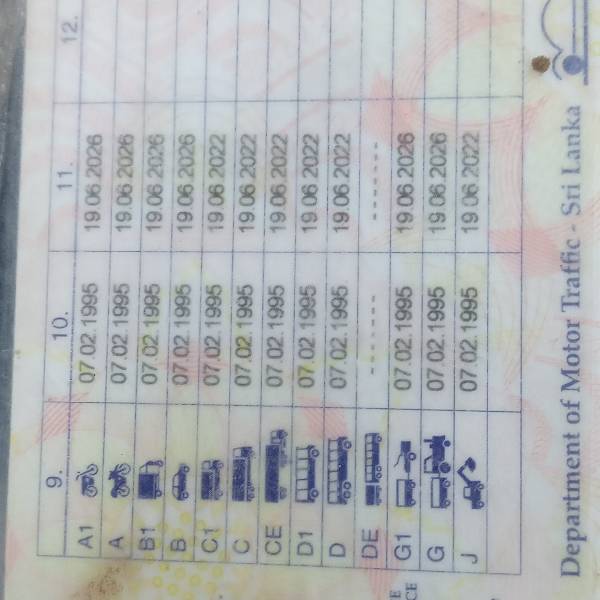 9. 10. 11. 12.
A1 07.02.1995 19.06.2026
A 07.02.1995 19.06.2026
B1 07.02.1995 19.06.2026
B 07.02.1995 19.06.2026
C1 07.02.1995 19.06.2022
C 07.02.1995 19.06.2022
CE 07.02.1995 19.06.2022
D1 07.02.1995 19.06.2022
D 07.02.1995 19.06.2022
DE ------- -------
G1 07.02.1995 19.06.2026
G 07.02.1995 19.06.2026
J 07.02.1995 19.06.2022
Department of Motor Traffic - Sri Lanka